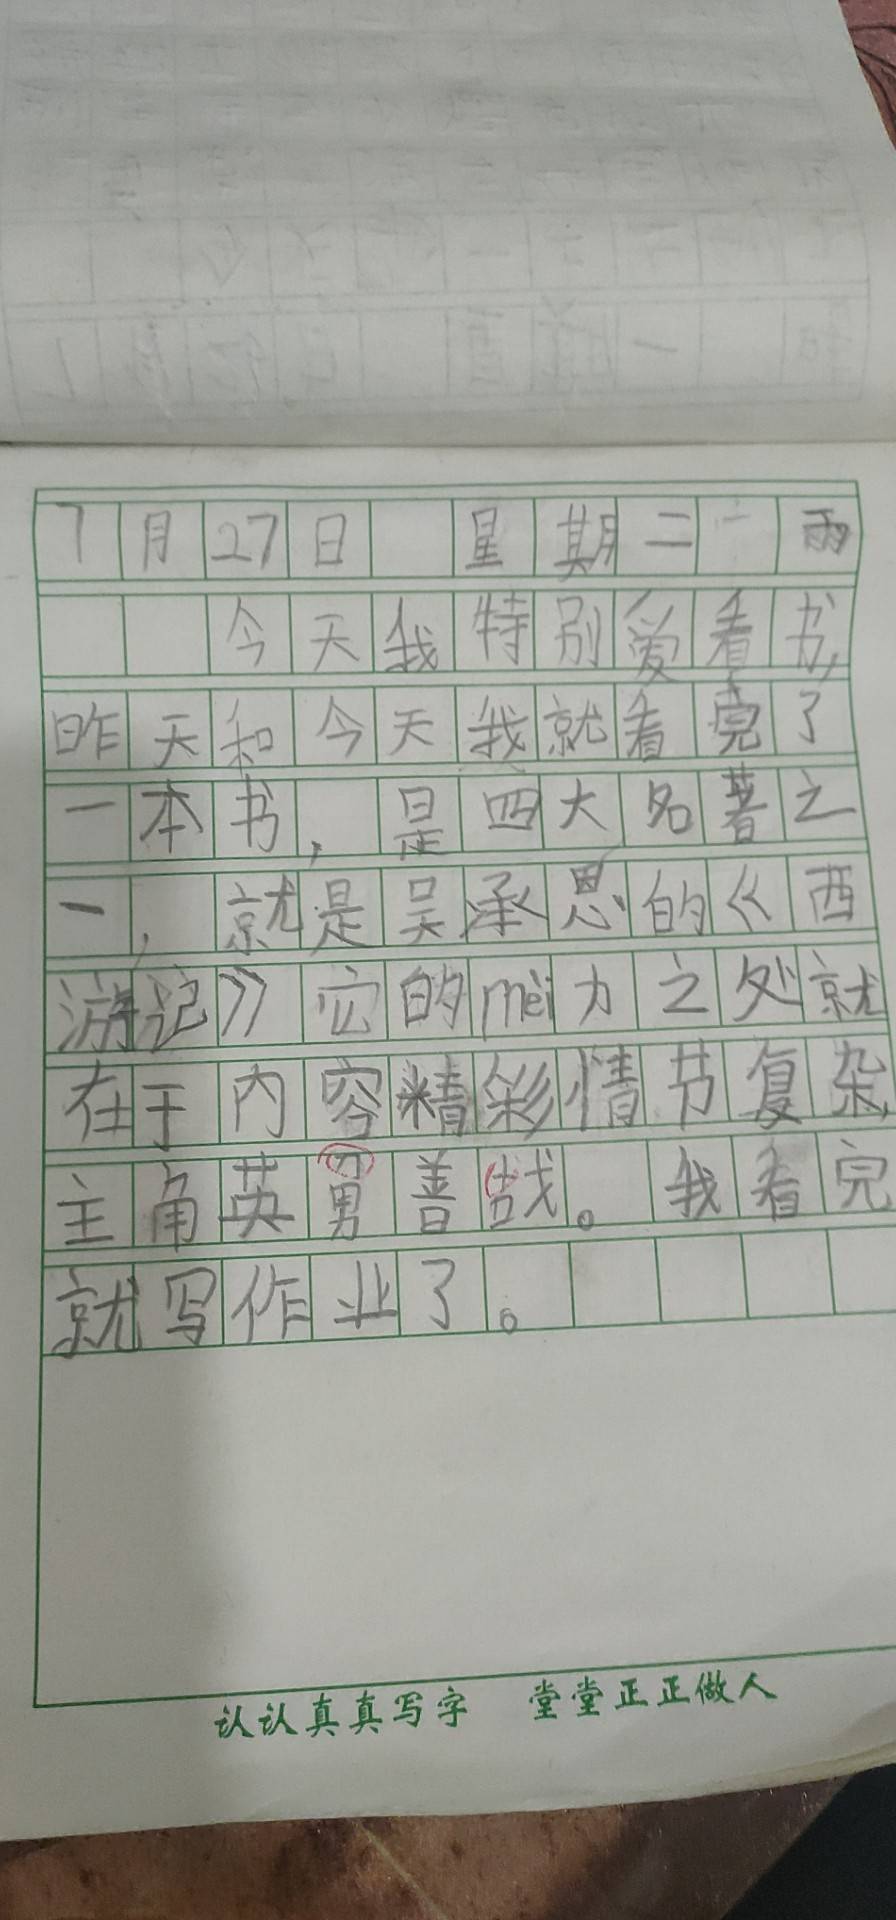 7月27日 星期二 雨
今天我特别爱看书,
昨天和今天我就看完了
一本书,是四大名著之
一,就是吴承恩的《西
游记》它的mèi力之处就
在于内容精彩情节复杂,
主角英勇善战。我看完
就写作业了。
认认真真写字 堂堂正正做人